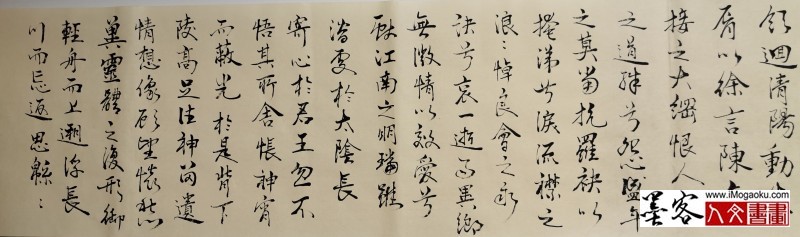 領迴清陽動
脣以徐言陳
接之大綱恨人
之道殊兮怨盛年
之莫當抗羅袂以
掩涕兮淚流襟之
浪〻悼良會之永
訣兮哀一逝而異鄉
無微情以效愛兮
獻江南之明璫雖
潛處於太陰長
寄心於君王忽不
悟其所舍悵神宵
而蔽光於是背下
陵高足往神留遺
情想像顧望懷愁
冀靈體之復形御
輕舟而上遡浮長
川而忘返思緜〻
墨客
www.iMogaoku.com
人文書畫